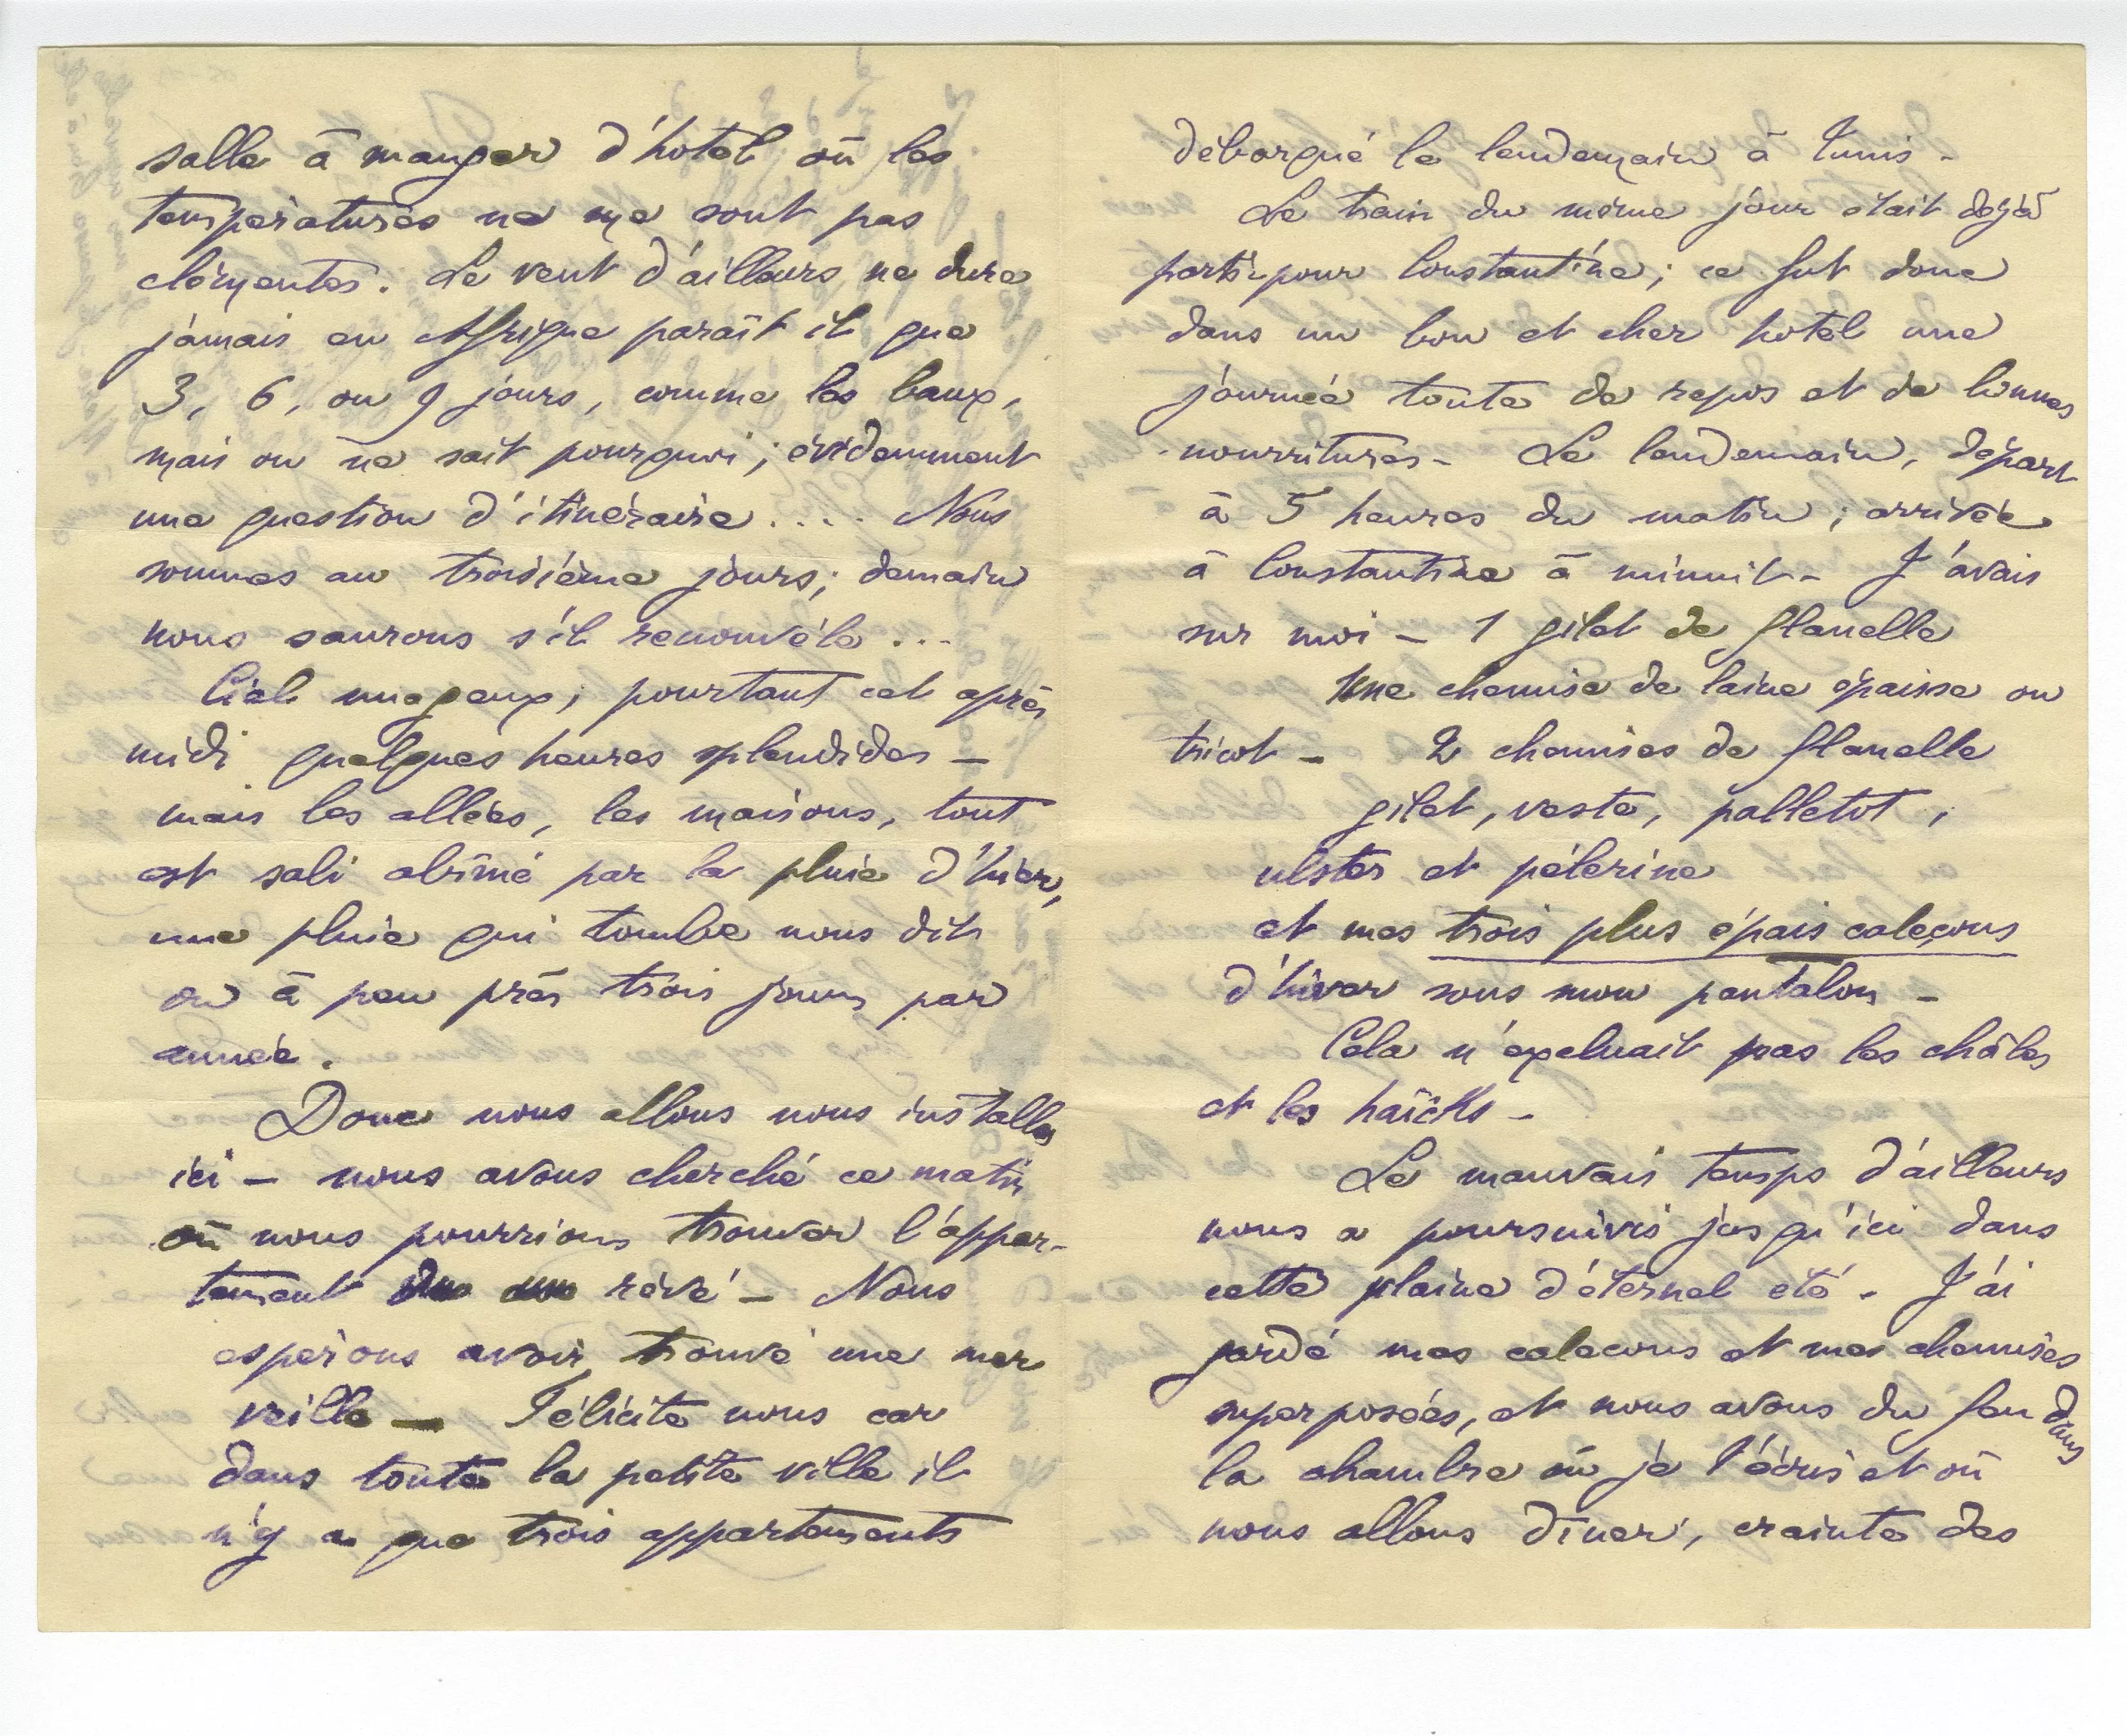 salle à manger d'hotel où les
températures ne me sont pas
clémentes. Le vent d'ailleurs ne dure
jamais en Afrique paraît il que
3, 6, ou 9 jours, comme les baux,
mais on ne sait pourquoi; évidemment
une question d'itinéraire.... Nous
sommes au troisième jours; demain
nous saurons s'il renouvéle...
Ciel nuageux; pourtant cet après
midi quelques heures splendides —
mais les allées, les maisons, tout
est sali abîmé par la pluie d'hier,
une pluie qui tombe nous dit
on à peu près trois jours par
année.
Donc nous allons nous installer
ici — nous avons cherché ce matin
où nous pourrions trouver l'appar-
tement rêvé — Nous
espérons avoir trouvé une mer
veille — Félicite nous car
dans toute la petite ville il
n'y a que trois appartements
débarqué le lendemain à Tunis -
Le train du même jour était déjà
parti pour Constantine; ce fut donc
dans un bon et cher hotel une
journée toute de repos et de bonnes
nourritures - Le lendemain, départ
à 5 heures du matin; arrivée
à Constantine à minuit - J'avais
sur moi — 1 gilet de flanelle
Une chemise de laine épaisse ou
tricot — 2 chemises de flanelle
gilet, veste, palletot;
ulster et pélerine
et mes trois plus épais caleçons
d'hiver sous mon pantalon -
Cela n'excluait pas les châles
et les haïcks -
Le mauvais temps d'ailleurs
nous a poursuivis jusqu'ici dans
cette plaine d'éternel été - J'ai
gardé mes calecons et mes chemises
superposées, et nous avons du feu dans
la chambre où je t'écris et où
nous allons dîner, crainte des